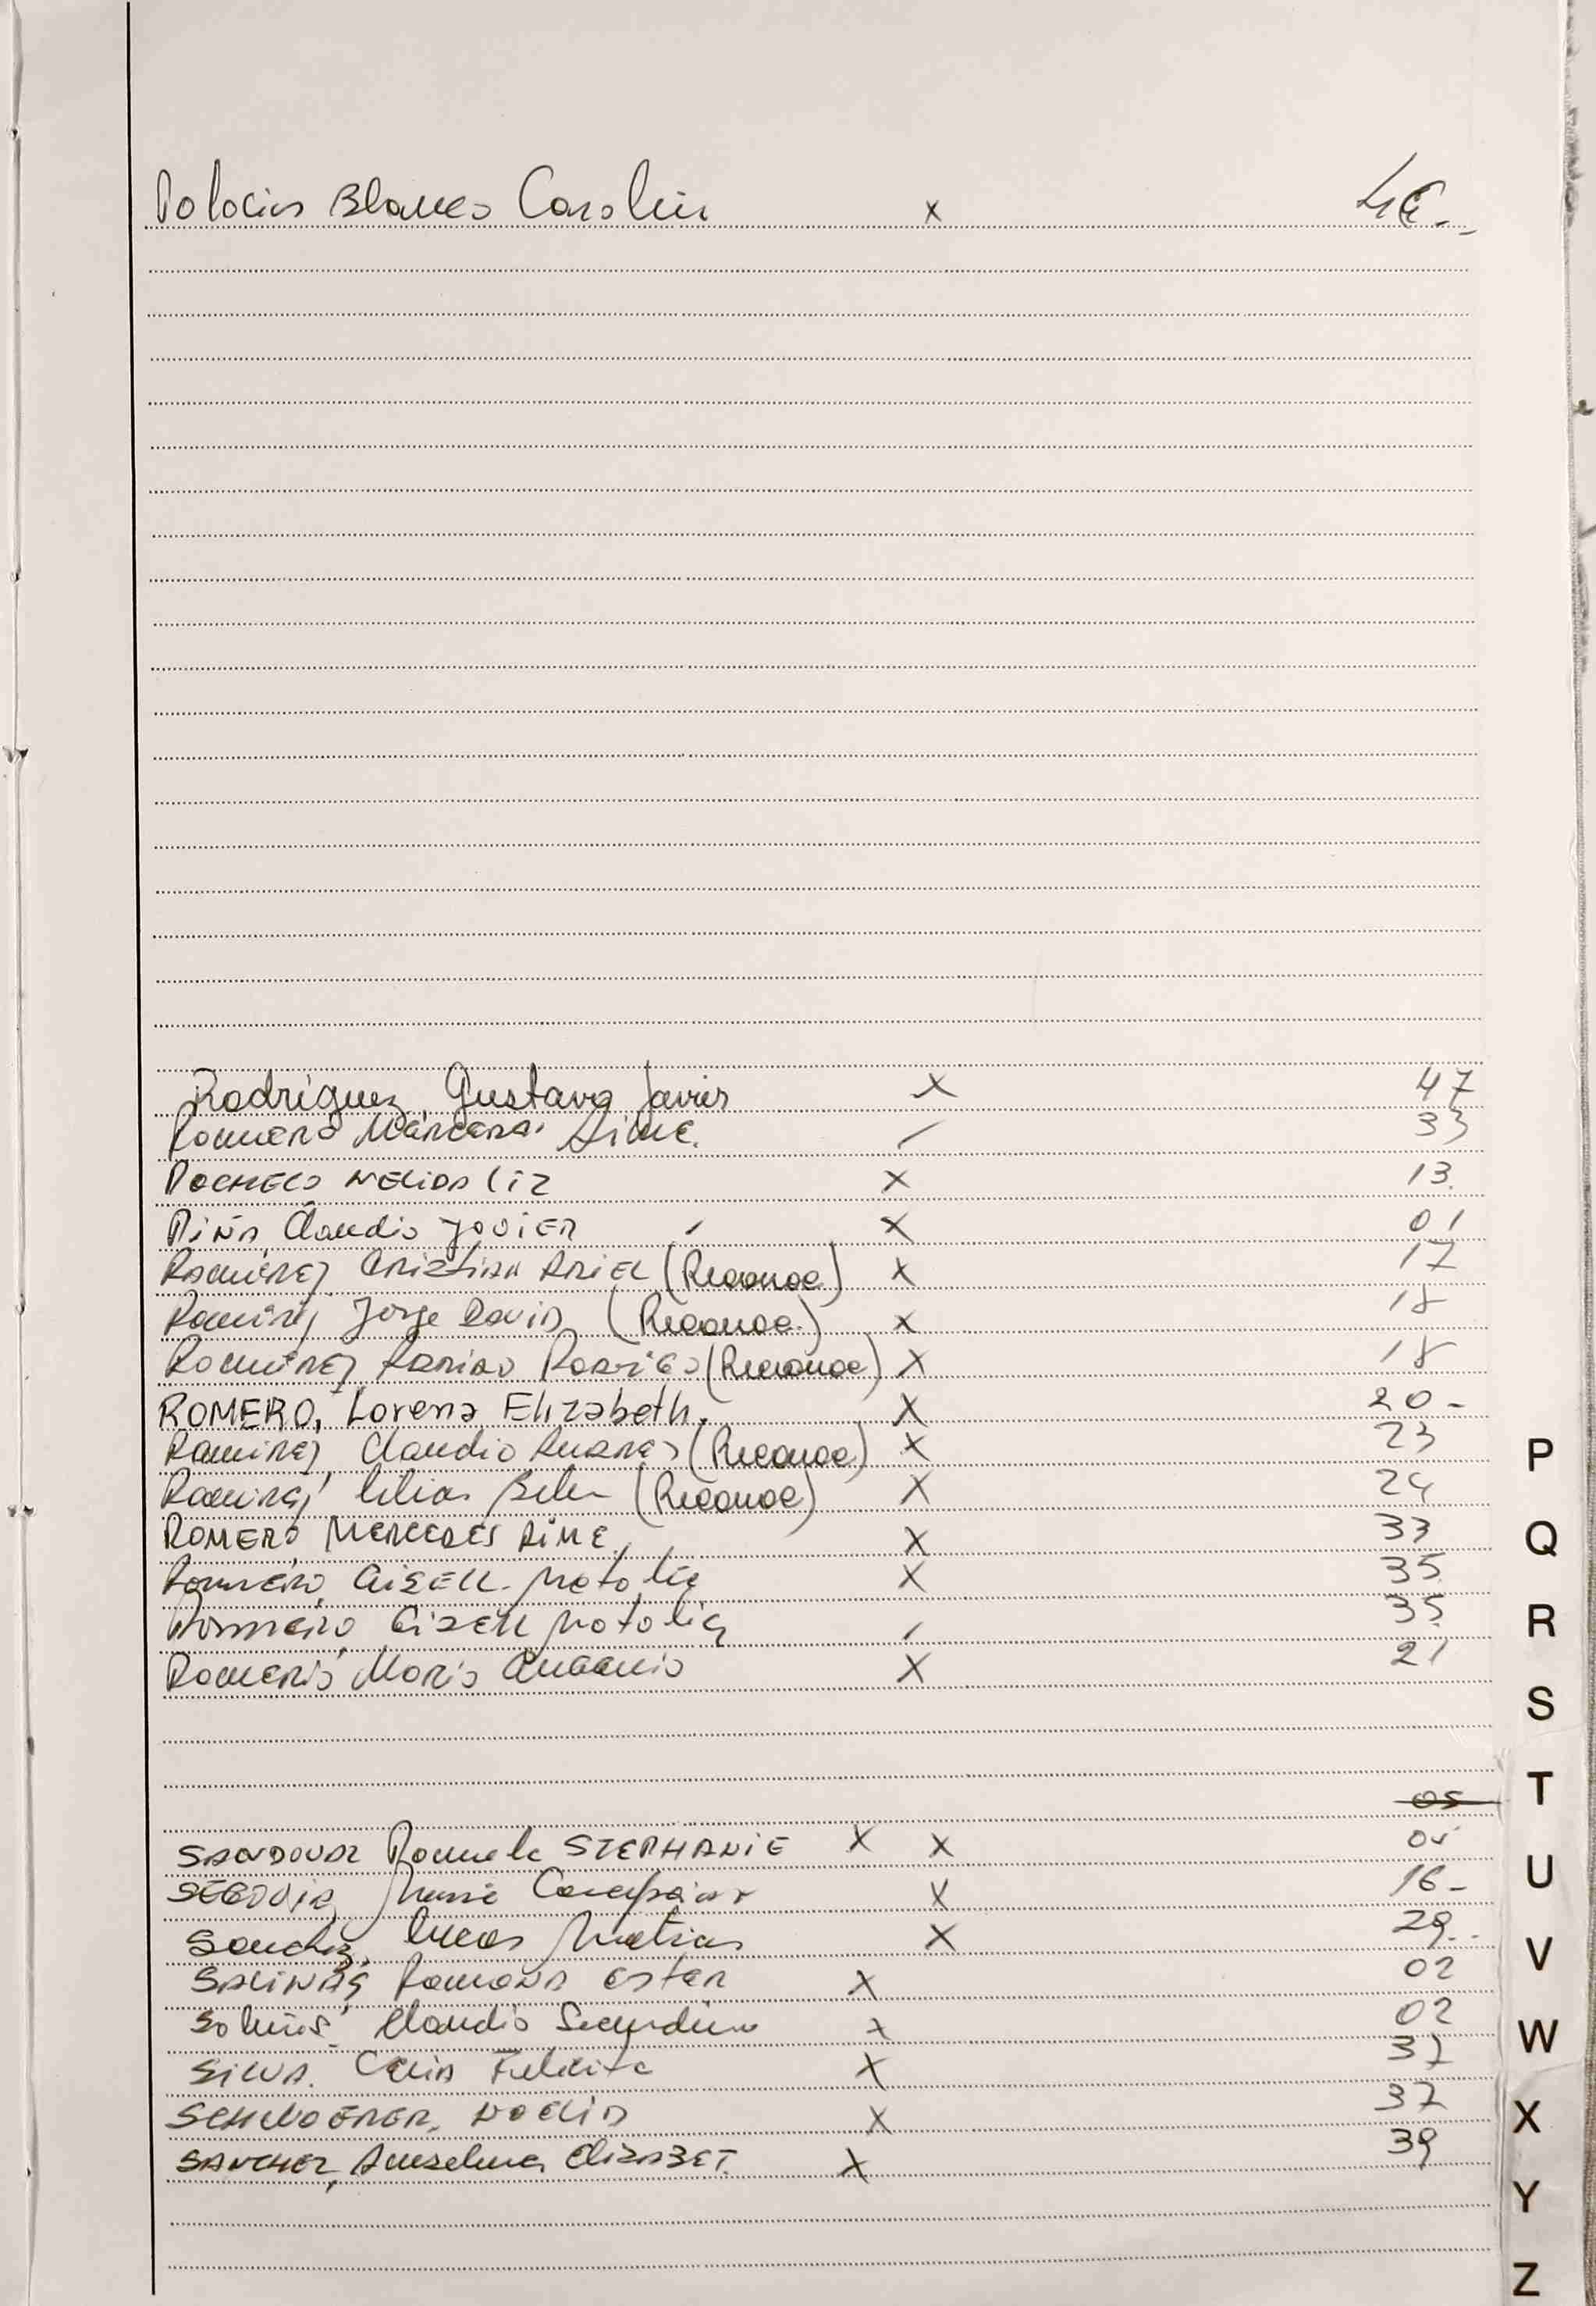 Blanco Carolin x
Rodriguez, Gustavo Javier x 47
Romero Aime. / 33
Pacheco Nelida Liz x 13.
Piña, Claudio Javier / x 01
Ramirez, Cristian Ariel (Reconoc) x 17
Ramirez, Jorge David (Reconoc.) x 18
Ramirez, Rodrigo (Reconoc) x 18
ROMERO, Lorena Elizabeth. x 20-
Ramirez, Claudio (Reconoc) x 23
Ramirez, Lilian Belen (Reconoc) x 24
ROMERO MERCEDES AIME x 33
Romero, GISELL Natalia x 35
Romero, Gisell Natalia / 35
Romero Mario x 21
05
SANDOVAL STEPHANIE x x 05
SEGOVIA, x 16-
Sanchez, Lucas Matias x 29..
SALINAS, Ramona Ester x 02
Salinas Claudio Secundino x 02
SILVA. Celia x 37
Noelia x 37
SANCHEZ, Anselma ELIZABET. x 39
P
Q
R
S
T
U
V
W
X
Y
Z